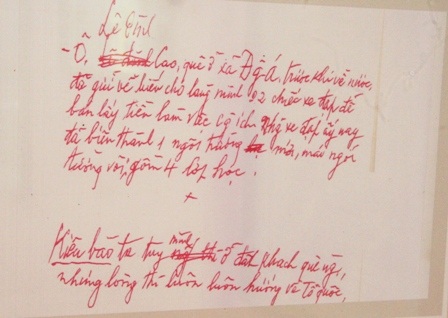 Lê Tính
- Ô. Cao, quê ở xã Đg-Á, trước khi về nước,
đã gửi về biếu chú làng mình 02 chiếc xe đạp, để
bán lấy tiền làm việc cg ích. Nhg xe đạp ấy nay
đã biến thành 1 ngôi trường mới, mái ngói
tường vôi, gồm 4 lớp học.
+
Kiều bào ta tuy mình ở đất khách quê ng,
nhưng lòng thì luôn luôn hướng về Tổ quốc,